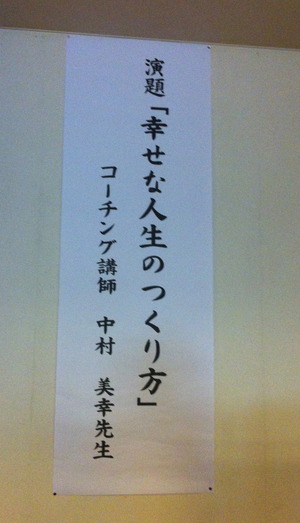 演題「幸せな人生のつくり方」
コーチング講師　中村　美幸先生